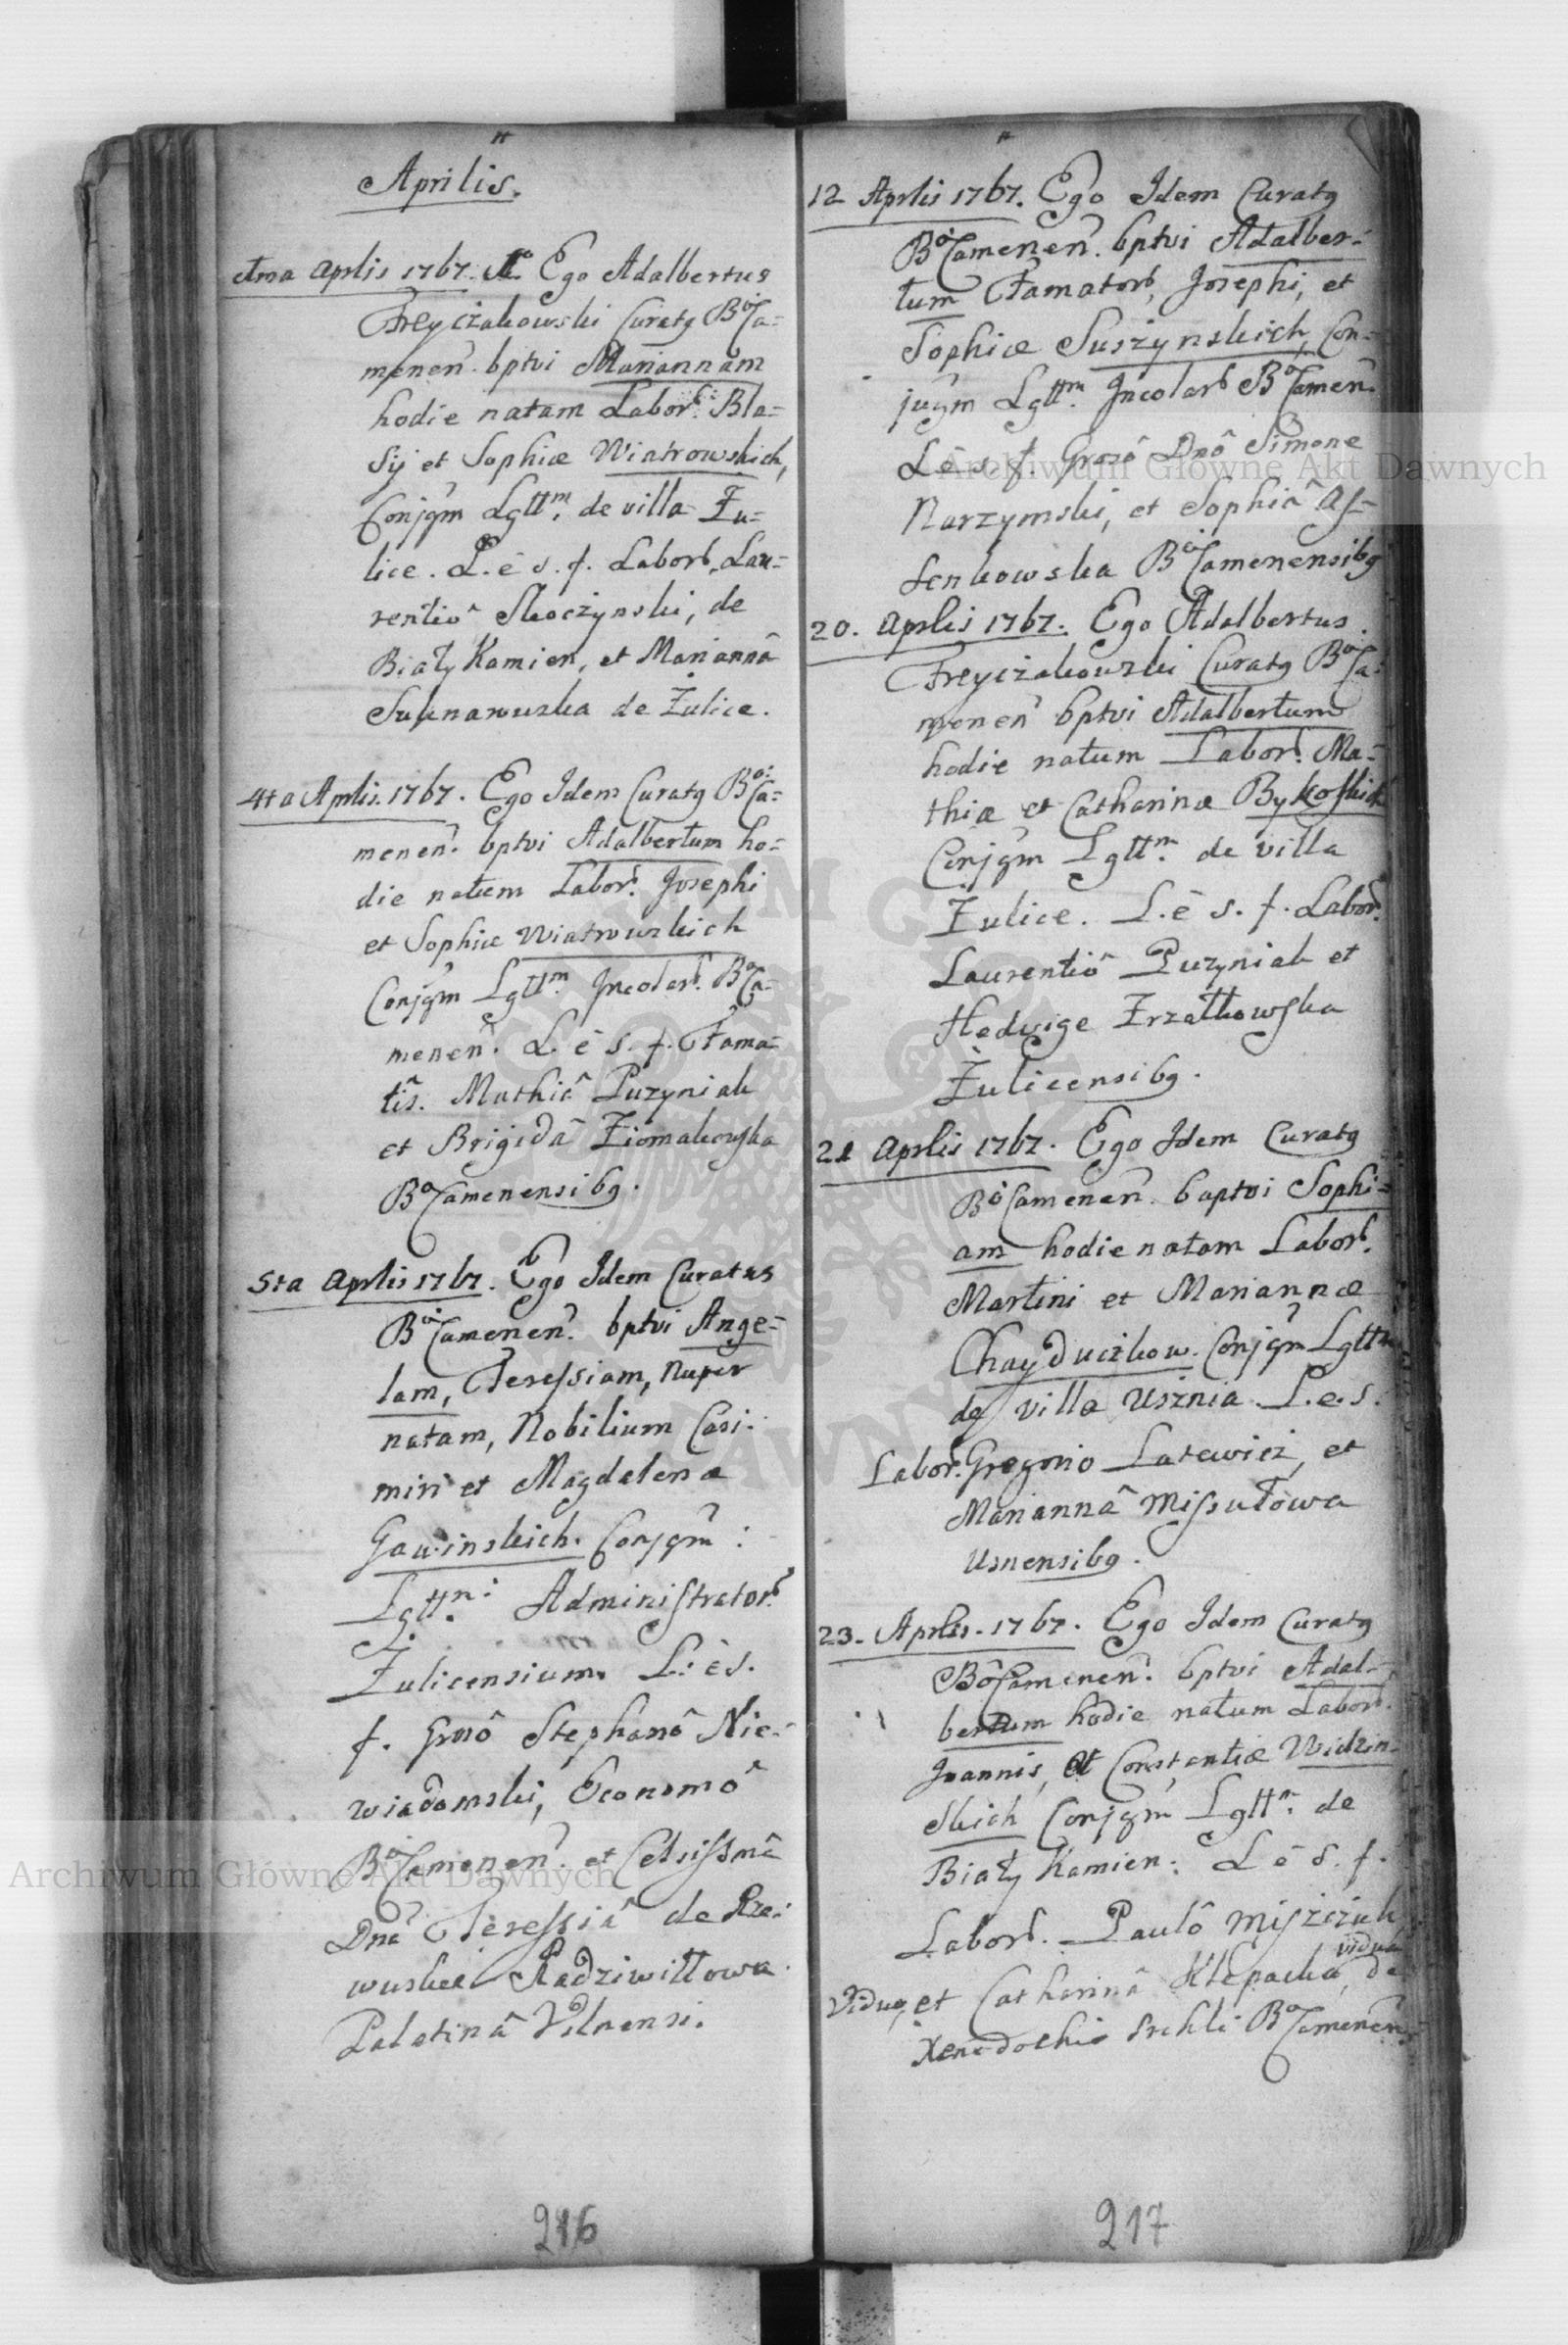 Aprilis.
Aprlis 1767. Ego Adalbertus
Freyciżakowski Curatg BiałCa=
menen. bptvi Mariannam
hodie natam Labor. Bla=
sij et Sophiæ Wiatrowskich,
Conjgm Lgttm. de villa Żu=
lice. L. è s. f. Labor. Lau=
rentio Skoczynski, de
Biały Kamien, et Mariannâ
de Żulice.
4ta Aprlis. 1767. Ego Idem Curatg Ba:Ca=
menen. bptvi Adalbertum ho=
die natum Labor. Josephi
et Sophiæ Wiatrowskich
Conjgm Lgttm. Incolar. BaCa=
menen. L. è s. f. Fama=
tis. Mathiâ Puzyniak
et Brigidâ Ziomakowska
BaCamenensibg.
5ta Aprlis 1767. Ego Idem Curatus
BaCamenen. bptvi Ange=
lam, Teressiam, nuper
natam, Nobilium Casi:
miri et Magdalenæ
Gawinskich. Conjgm:
Lgttm: Administrator.
Żulicensium. L: è s.
f. Gnsô Stephanô Nie=
wiadomski, Economô
BaCamenen. et Celsissmâ
Dnâ Teressiâ de Rze:
wuskie Radziwiłłowa
Palatinâ Vilnensi.
216
12 Aprlis 1767. Ego Idem Curatg
BaCamenen. bptvi Adalber=
tum Famator, Josephi, et
Sophiæ Suszynskich, Con=
jugm Lgttm. Incolar BaCamen.
L è s. f. Gnsô Dnô Simone
Narzymski, et Sophiâ As=
senkowska BaCamenensibg
20. Aprlis 1767. Ego Adalbertus
Freyciżakowski Curatg BaCa=
menen bptvi Adalbertum
hodie natum Labor. Ma=
thiæ et Catharinæ Bykoskich
Conjgm Lgttm. de villa
Żulice. L. è s. f. Labor.
Laurentiô Puzyniak et
Hedvige Zrzałkowska
Żulicensibg.
21 Aprlis 1767. Ego Idem Curatg
BaCamenen. baptvi Sophi=
am hodie natam Labor.
Martini et Mariannæ
Chayduczkow. Conjgm Lgttm
de villa Usznia L. e. s.
Labor. Gregorio Latewicz, et
Mariannâ Missutowa
Usnensibg.
23. Aprlis. 1767. Ego Idem Curatg
BaCamenen. bptvi Adal=
bertum hodie natum Labor.
Joannis, et Constantiæ Widzin=
skich Conjgm Lgttm. de
Biały Kamien: L è s. f.
Labor. Paulô Miszczuk
viduâ
Viduo, et Catharinâ Klepacka, de
Xenodochio BaCamenen
217
Archiwum Główne Akt Dawnych
Archiwum Główne Akt Dawnych